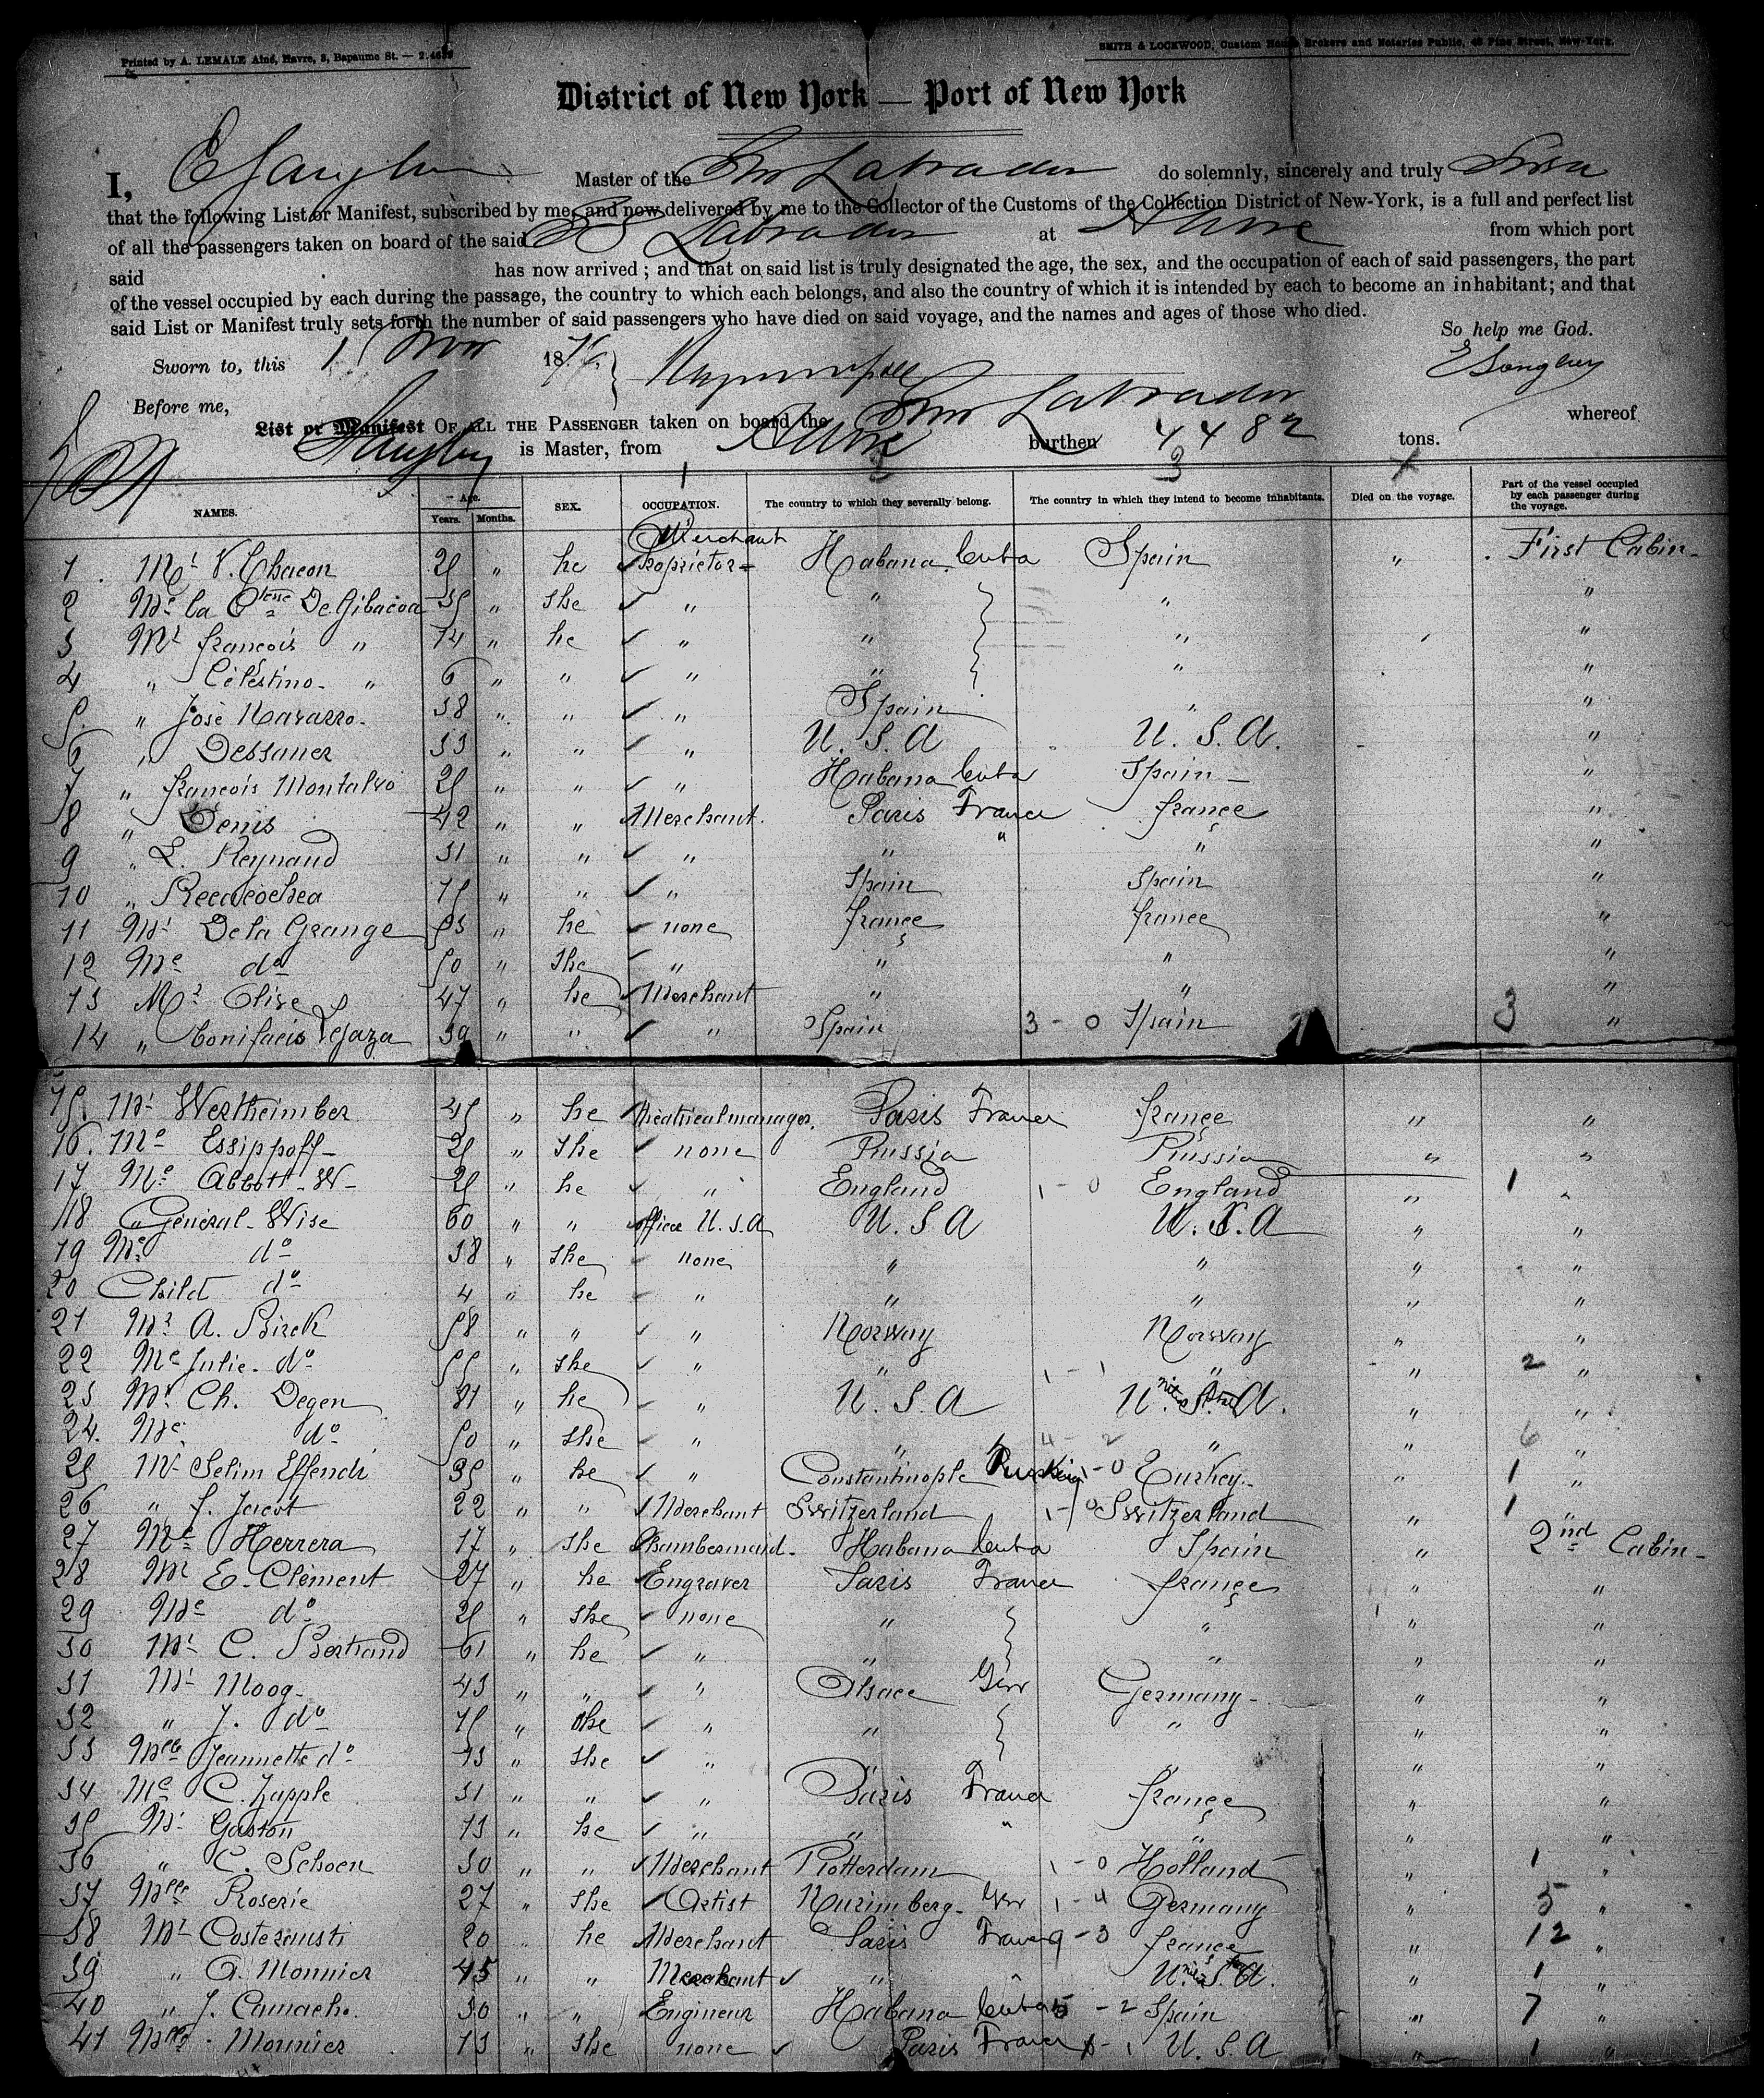 Printed by A. LEMALE Aîné, Havre, 3, Bapaume St. —
SMITH & LOCKWOOD, Custom House Brokers and Notaries Public, 46 Pine Street, New-York.
District of New York — Port of New York
I, Master of the Str Labrador do solemnly, sincerely and truly Swear
that the following List or Manifest, subscribed by me, and now delivered by me to the Collector of the Customs of the Collection District of New-York, is a full and perfect list
of all the passengers taken on board of the said SS Labrador at Havre from which port
said has now arrived ; and that on said list is truly designated the age, the sex, and the occupation of each of said passengers, the part
of the vessel occupied by each during the passage, the country to which each belongs, and also the country of which it is intended by each to become an inhabitant; and that
said List or Manifest truly sets forth the number of said passengers who have died on said voyage, and the names and ages of those who died.
So help me God.
Sworn to, this 1 Nov 1876
Before me,
List or Manifest OF ALL THE PASSENGER taken on board the Str Labrador whereof
is Master, from Havre burthen 4482 tons.
NAMES. Age. Years. Months. SEX. OCCUPATION. The country to which they severally belong. The country in which they intend to become inhabitants. Died on the voyage. Part of the vessel occupied by each passenger during the voyage.
Merchant
1 Mr V. Chacon 25 " he Proprietor Habana Cuba Spain " First Cabin
2 Me la Ctesse De Gibacoa 35 " she " " " "
3 Mr François " 14 " he " " " "
4 " Célestino " 6 " " " " " "
5 " José Navarro 38 " " " Spain " "
6 " Dessauer 33 " " " U. S. A U. S. A. "
7 " François Montalvo 25 " " " Habana Cuba Spain "
8 " Denis 42 " " Merchant Paris France France "
9 " L. Reynaud 31 " " " " " " "
10 " Recalcochea 15 " " " Spain Spain "
11 Mr De la Grange 53 " he none France France "
12 Me do 50 " she " " " "
13 Mr Olive 47 " he Merchant " " "
14 " Bonifacis Legaza 39 " " " Spain 3 - 0 Spain 3 "
15 Mr Wertheimber 45 " he theatrical manager. Paris France France " "
16 Me Essippoff 25 " she none Russia Russia " "
17 Mr Abbott-W- 25 " he " England 1 - 0 England " 1 "
18 General Wise 60 " " officer U.S.A U. S A U. S. A " "
19 Me do 38 " she none " " " "
20 Child do 4 " he " " " " "
21 Mr A. Birck 58 " " " Norway Norway " "
22 Me Julie do 55 " she " " 1 - 1 " " 2 "
23 Mr Ch. Degen 81 " he " U. S. A United S. A. " "
24 Me do 50 " she " " 4 - 2 " " 6 "
25 Mr Selim Effendi 35 " he " Constantinople 1 - 0 Turkey " 1 "
26 " J. Jacot 22 " " Merchant Switzerland 1 - 0 Switzerland " 1 "
27 Me Herrera 17 " she Chambermaid Habana Cuba Spain " 2nd Cabin
28 Mr E. Clément 27 " he Engraver Paris France France " "
29 Me do 25 " she none " " " "
30 Mr C. Bertrand 61 " he " " " " "
31 Mr Moog 43 " " " Alsace Ger Germany " "
32 " J. do 15 " she " " " " "
33 Melle Jeannette do 13 " she " " "
34 Me C. Zapple 31 " " " Paris France France " "
35 Mr Gaston 13 " he " " " " " "
36 " C. Schoen 30 " " Merchant Rotterdam 1 - 0 Holland " 1 "
37 Melle Roserie 27 " she Artist Nurimberg Ger 1 - 4 Germany " 5 "
38 Mr 20 he Merchant Paris France 9 - 3 France " 12 "
39 " A. Monnier 45 " " Merchant " " United S. A. " 1 "
40 " J. Camacho 30 " " Engineur Habana Cuba 5 - 2 Spain " 7 "
41 Melle Monnier 13 " she none Paris France - 1 U. S. A " 1 "